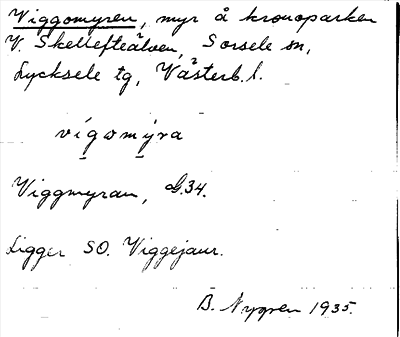 Viggomyren, myr å kronoparken
V. Skellefteälven, Sorsele sn,
Lycksele tg, Västerb. l.
vígωmỳra
Viggmyran, G.34.
Ligger SO. Viggejaur.
B. Nygren 1935.